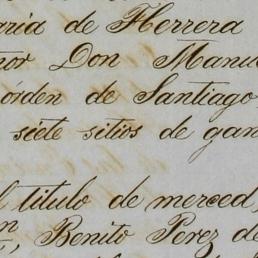 aria de Herrera
ñor Don Manu
órden de Santiago,
siete sitios de gan
l titulo de merced,
Benito Perez de